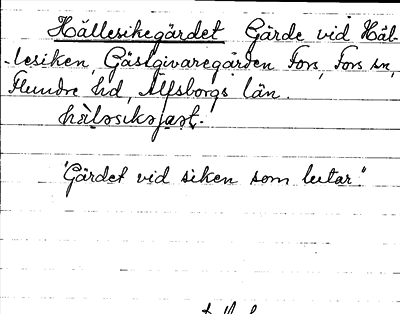 Hällesikegärdet Gärde vid Häl-
-lesiken, Gästgivaregården Fors, Fors sn,
Flundre hd, Älfsborgs län.
"Gärdet vid siken som lutar"